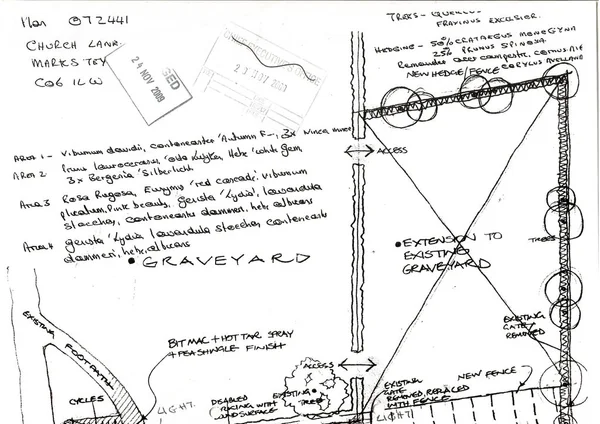 Plan 072441
CHURCH LANE
MARKS TEY
CO6 1LW
24 NOV 2009
TREES - QUERCUS
FRAXINUS EXCELSIOR.
HEDGING - 50% CRATAEGUS MONOGYNA
25% PRUNUS SPINOSA.
Remainder acer campestre, cornus
CORYLUS AVELLANA
NEW HEDGE/FENCE
Area 1 - Viburnum davidii, cotoneaster 'Autumn F-, 3x Vinca minor
AREA 2 Prunus laurocerasus, 'Otto Luyken, Hebe 'white Gem,
3x Bergenia 'Silberlicht
Area 3 Rosa Rugosa, Euonymus 'red cascade, viburnum
plicatum, Pink beauty, genista 'Lydia', lavandula
stoechas, cotoneaster dammeri, hebe albicans
Area 4 genista 'Lydia lavandula stoechas, cotoneaster
dammeri, hebe, albicans
ACCESS
GRAVEYARD
EXTENSION TO
EXISTING
GRAVEYARD
TREES
EXISTING
GATE
REMOVED
EXISTING
FOOTPATH
BITMAC + HOT TAR SPRAY
+ PEASHINGLE FINISH
ACCESS
CYCLES
LIGHT.
DISABLED
EXISTING
TREE
EXISTING
GATE
REMOVED, REPLACED
WITH FENCE
LIGHT
NEW FENCE